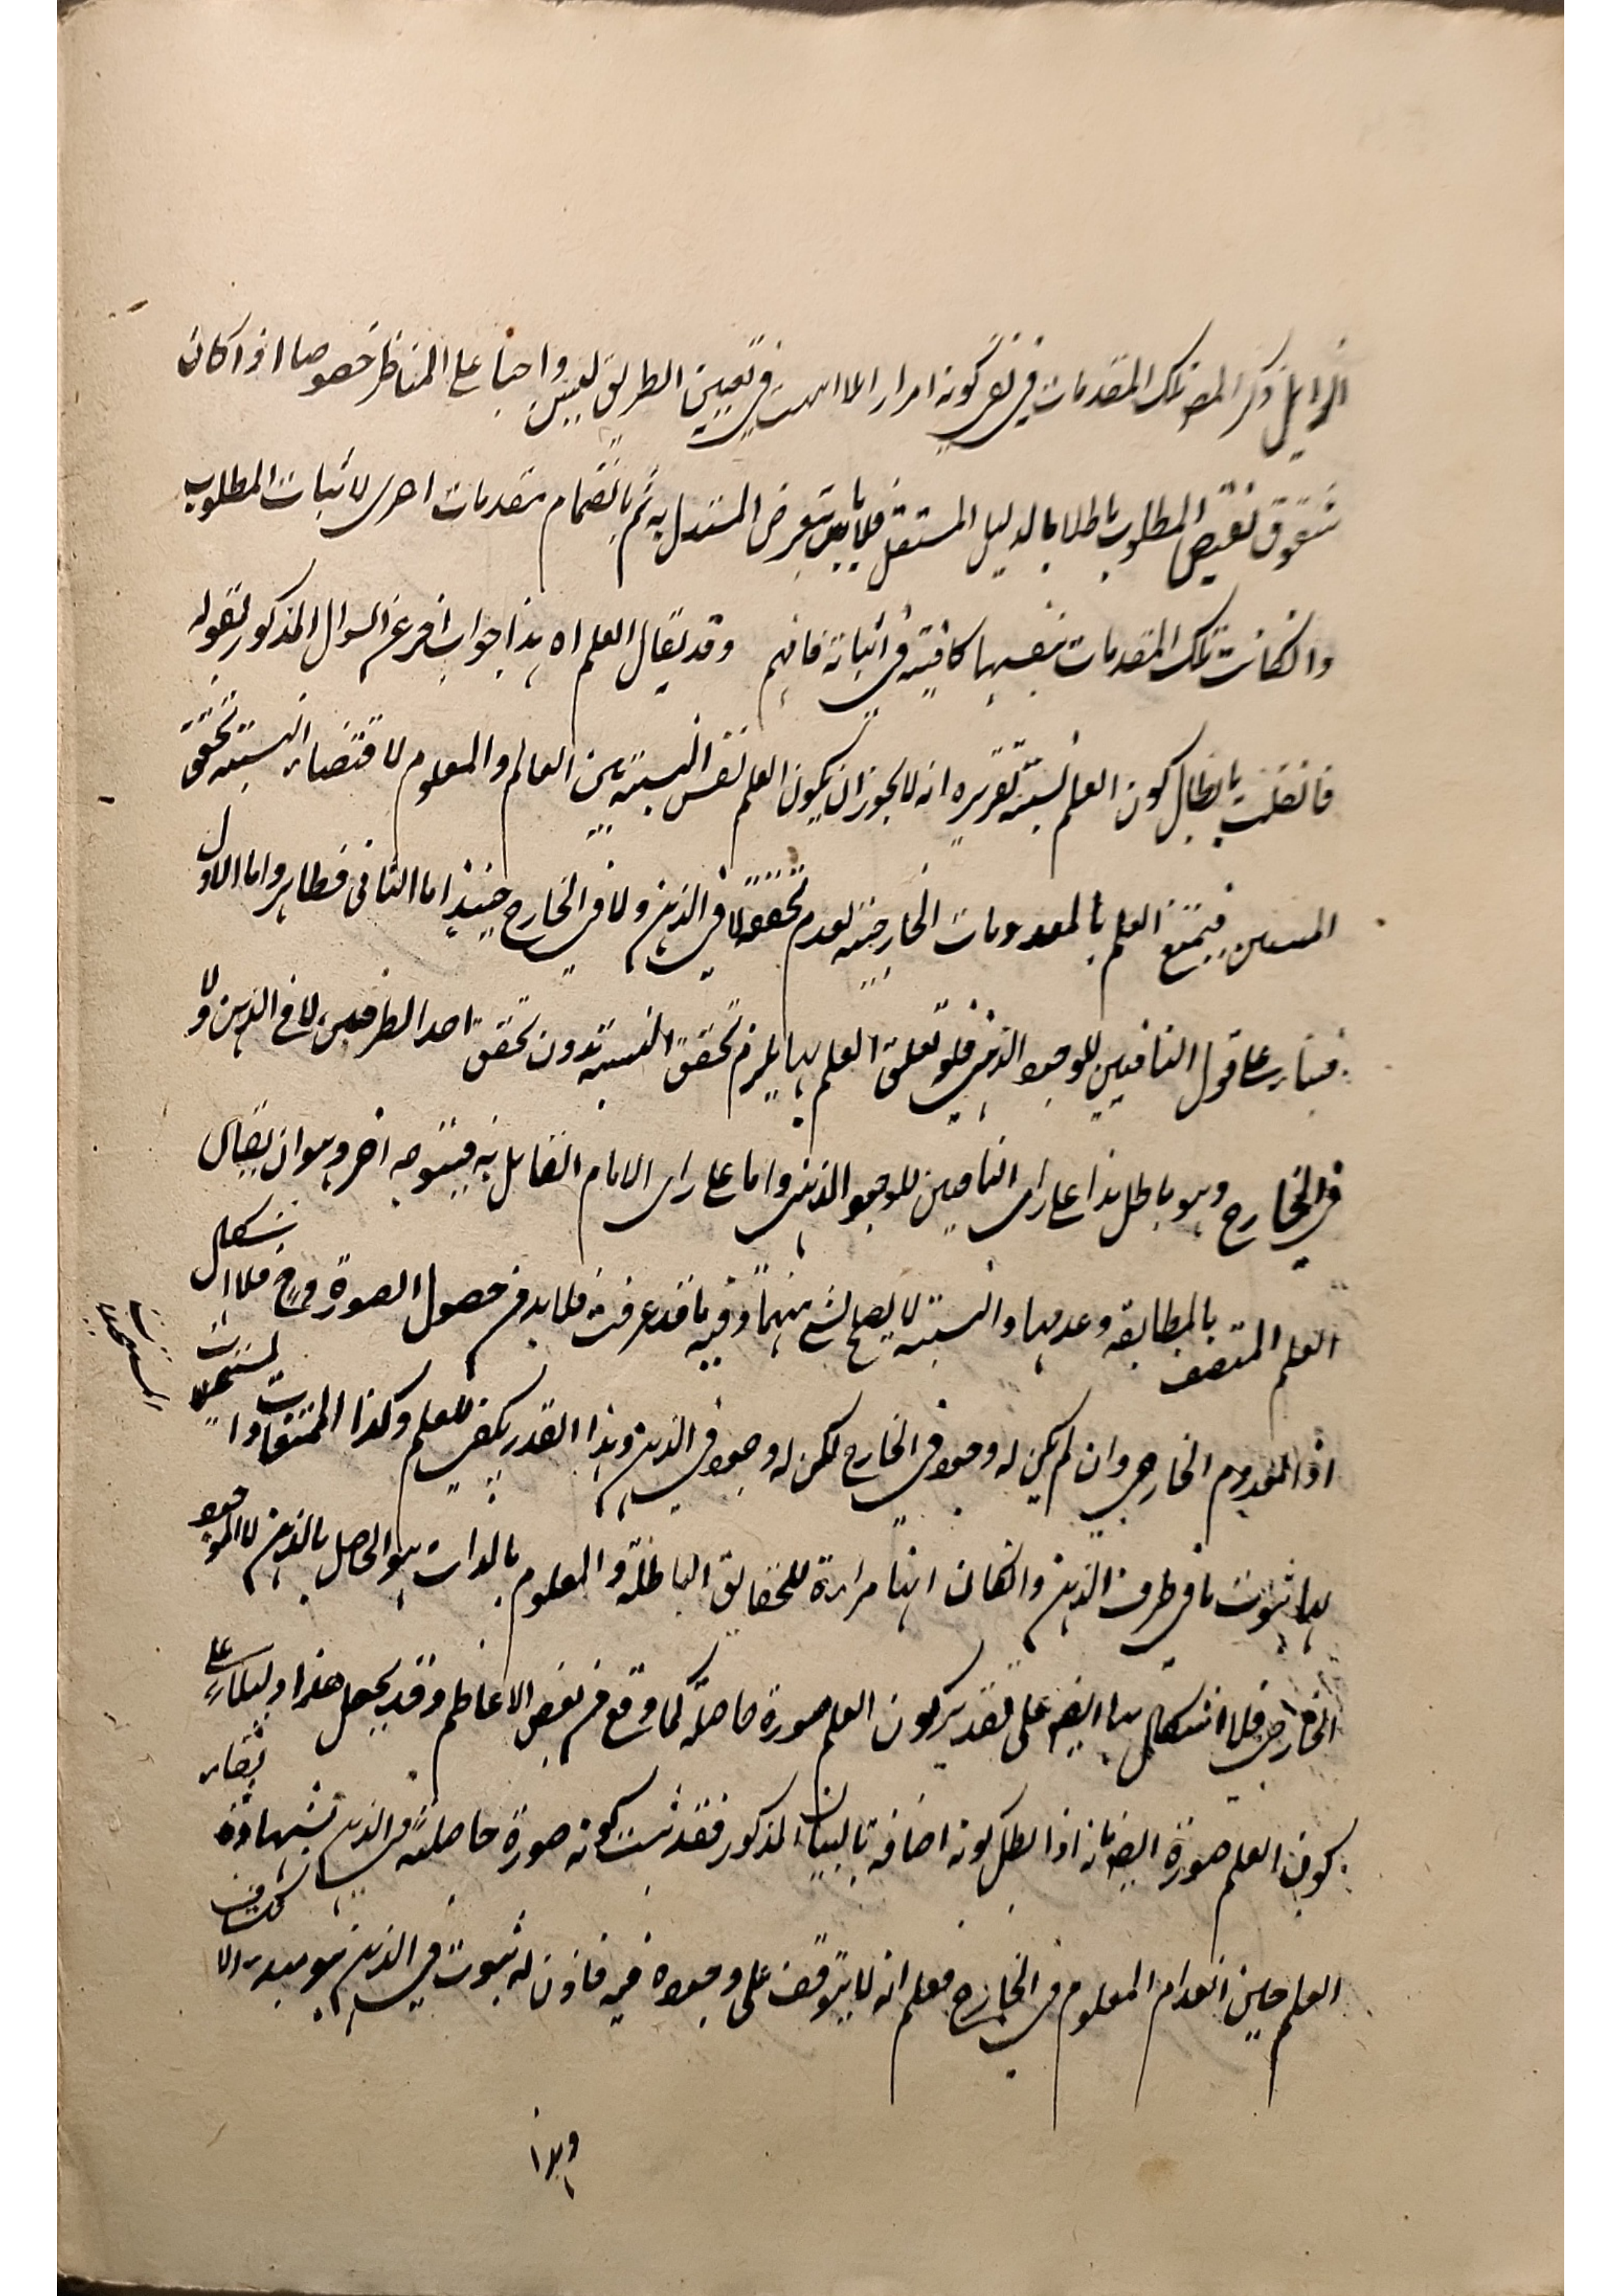 الزايل ذكر المصـ تلك المقدمات في نفي كونه امرا زايلا اذ ليست في تعيين الطريق لعين واجبا على المناظر خصوصا اذا كان
نقيض المطلوب باطلا بالدليل المستقل فلا باس بتعرض المستدل به ثم بانضمام مقدمات اخرى لاثبات المطلوب
وانكانت تلك المقدمات بنفسها كافية في اثباته فافهم وقد يقال العلم اه هذا جواب اخر عن السوال المذكور بقوله
فان قلت بابطال كون العلم نسبة تقريره انه لا يجوز ان يكون العلم نفس النسبة بين العالم والمعلوم لاقتضاء النسبة تحقق
المنتسبين فيمتنع العلم بالمعدومات الخارجية لعدم تحققها لا في الذهن ولا في الخارج حينئذ اما الثاني فظاهر واما الاول
فبناء على قول النافيين للوجود الذهني فلو تعلق العلم بها يلزم تحقق النسبة بدون تحقق احد الطرفين لا في الذهن ولا
في الخارج وهو باطل هذا على راى النافيين للوجود الذهني واما على راى الامام القايل به فيتوجه اخر وهو ان يقال
العلم المتصف بالمطابقة وعدمها والنسبة لا يصلح لشئ منهما وفيه ما قد عرفت فلا بد من حصول الصورة وح فلا اشكال
اذ المعدوم الخارجي وان لم يكن له وجود في الخارج لكن له وجود في الذهن وهذا القدر يكفي للعلم وكذا الممتنعات والمستحيلات
المستحيلات
لها ثبوت ما في ظرف الذهن وانكان انها مراءة للحقايق الباطلة والمعلوم بالذات هو الحاصل بالذهن لا الموجود
الخارجي فلا اشكال بها ايضـ على تقدير كون العلم صورة حاصلة كما وقع من بعض الاعاظم وقد يجعل هذا دليلا على
كون العلم صورة ايضـ بانه اذا بطل كونه اضافة بالبيان المذكور فقد ثبت كونه صورة حاصلة في الذهن بشهادة بقاء
العلم حين انعدام المعلوم في الخارج فعلم انه لا يتوقف على وجوده فيه فاذن له ثبوت في الذهن هو مبدء الانكشاف
وهذا